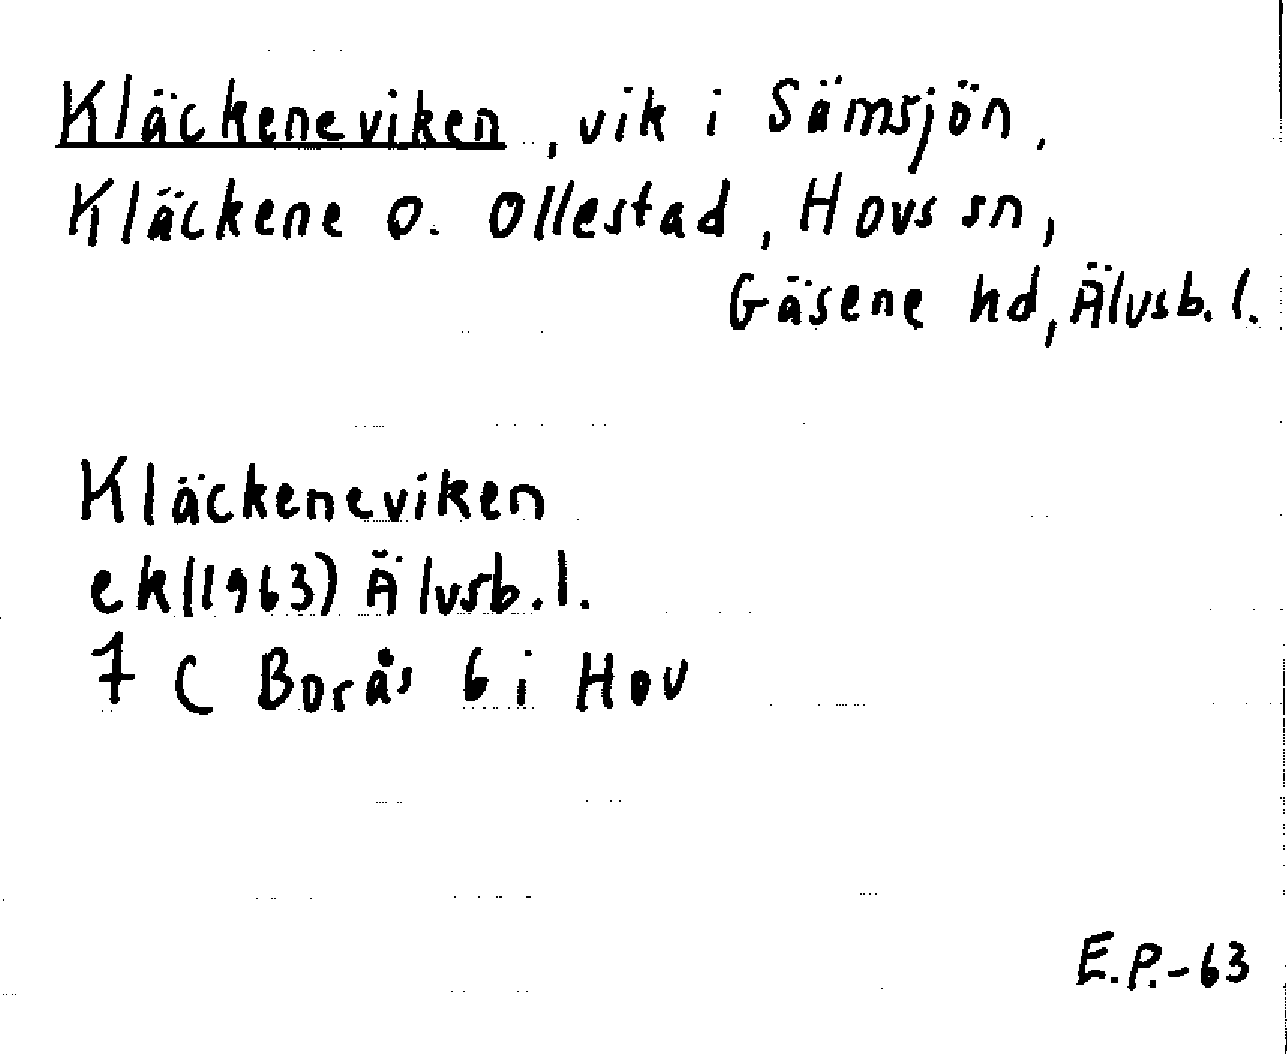 Kläckeneviken, vik i Sämsjön,
Kläckene o. Ollestad, Hovs sn,
Gäsene hd, Älvsb. l.
Kläckeneviken
ek(1963) Älvsb. l.
7 C Borås 6 i Hov
E.P.-63